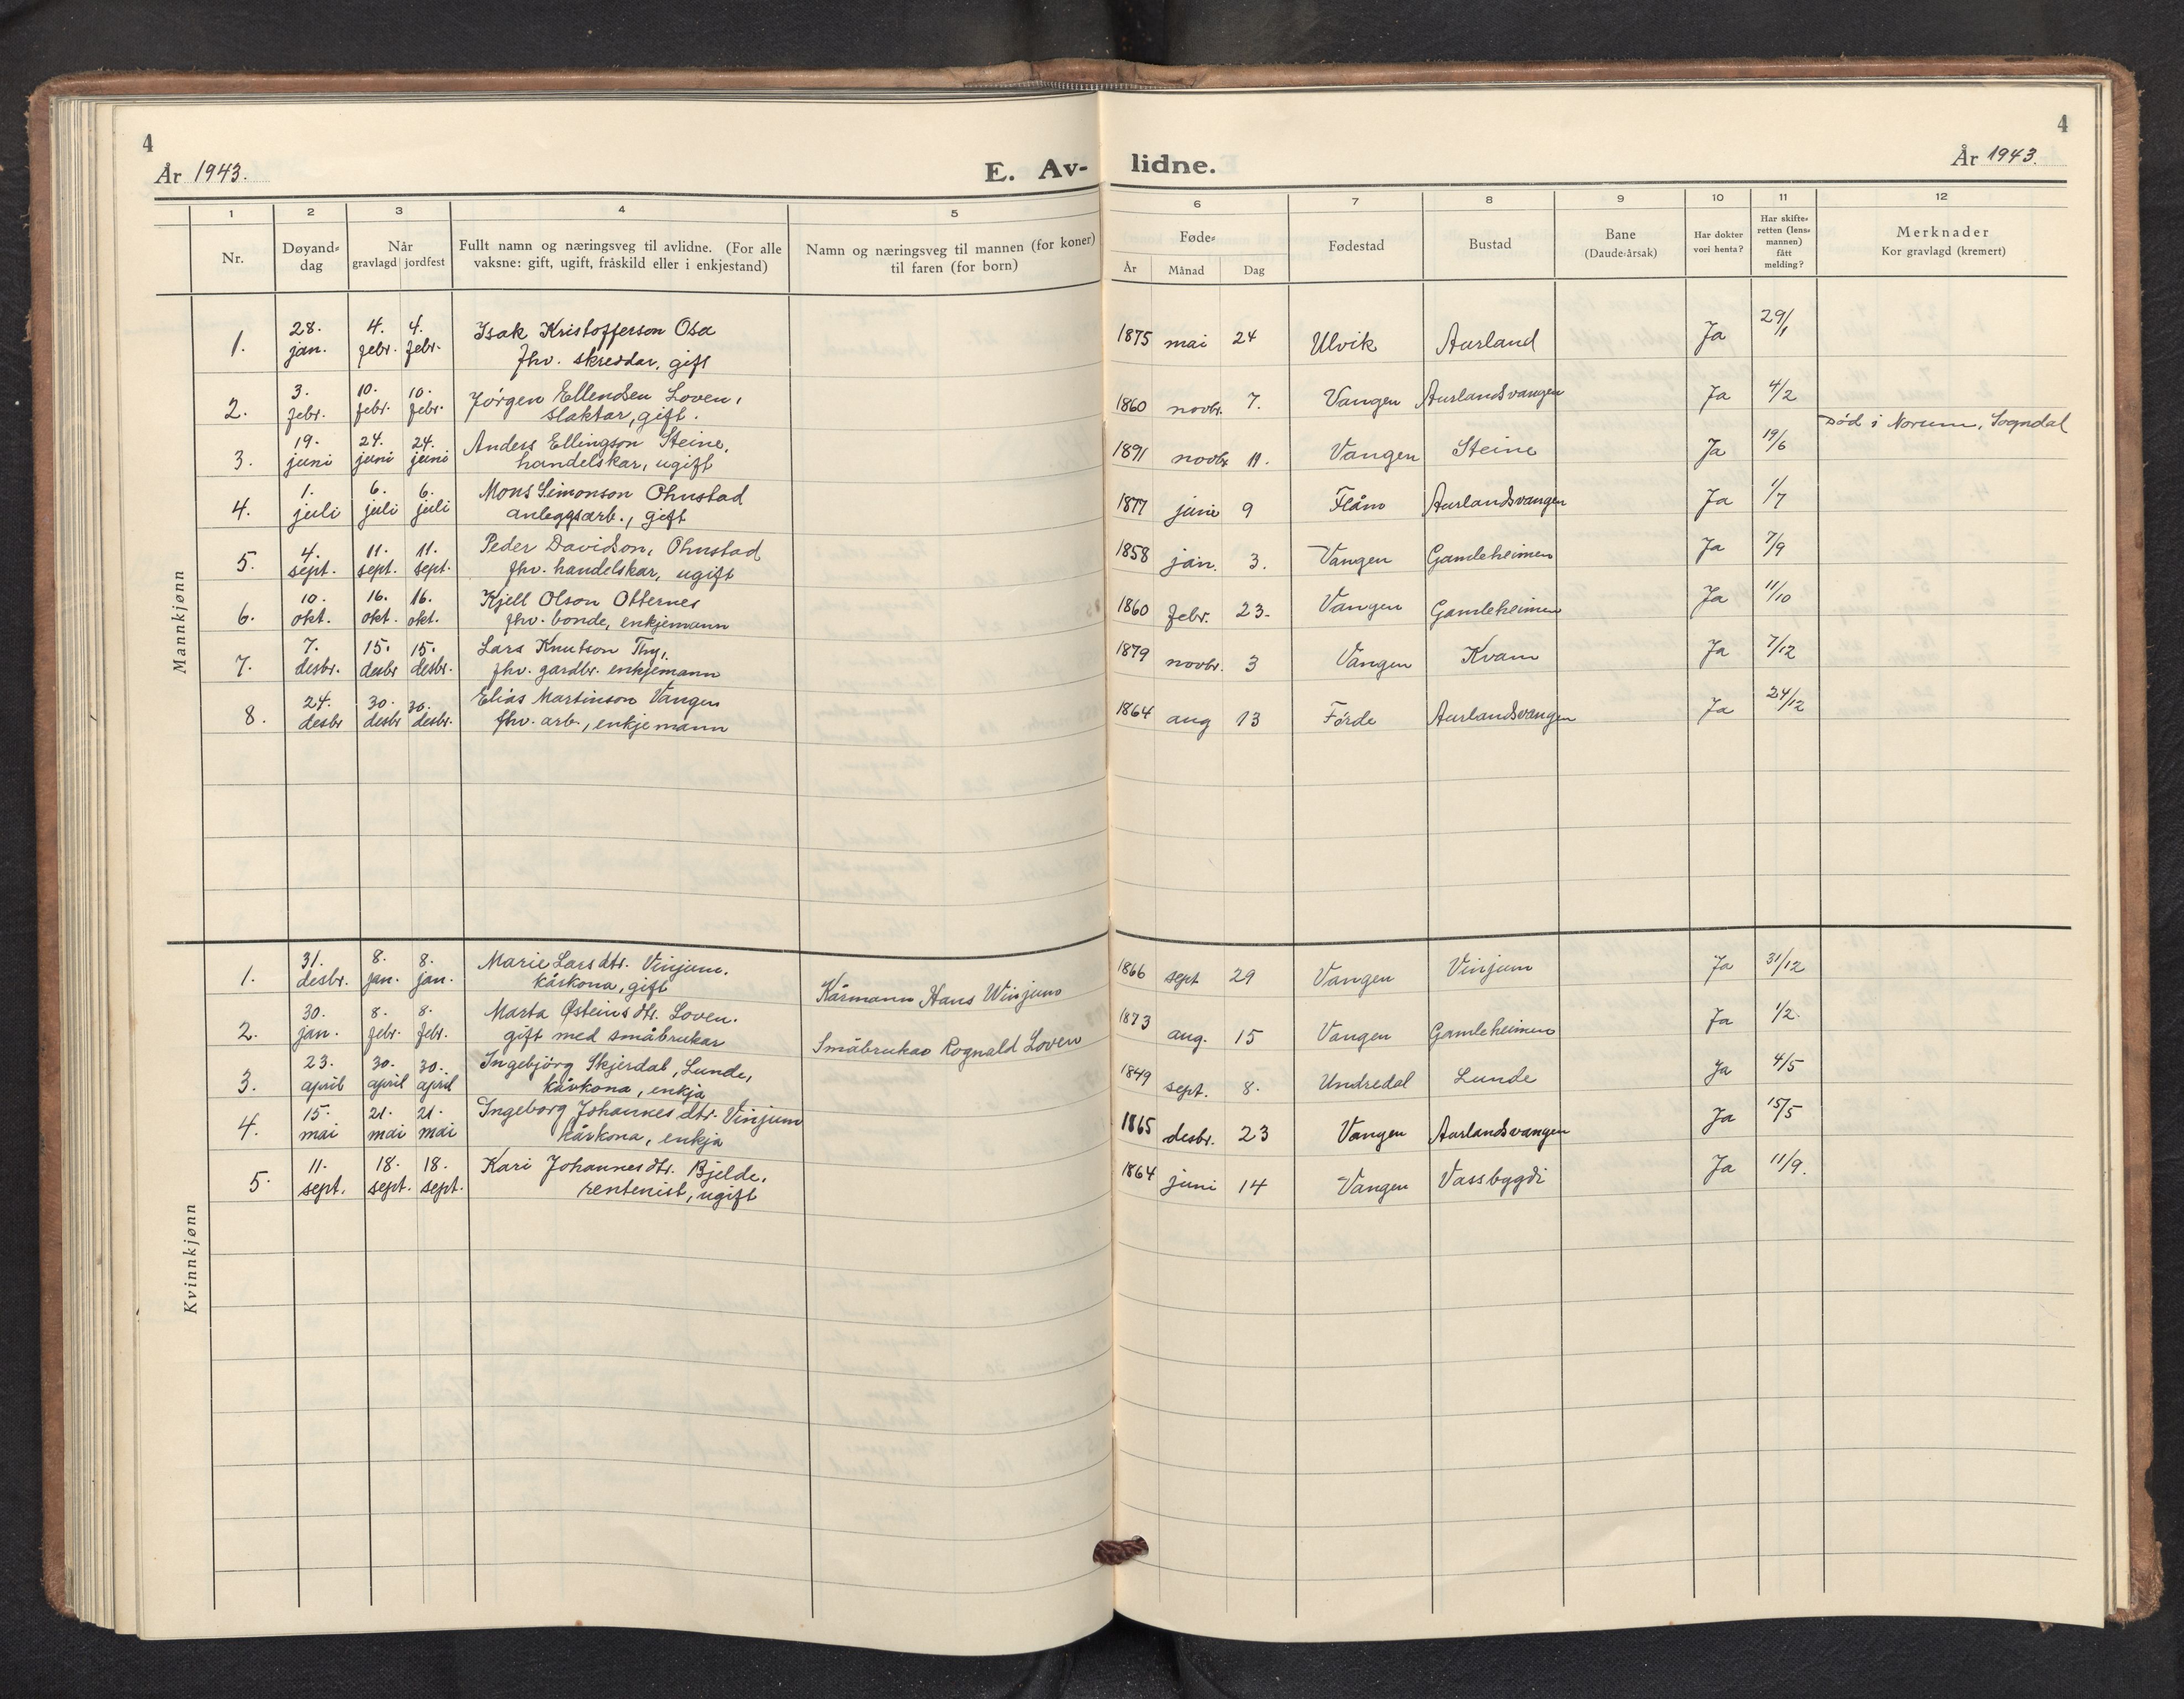 4
År 1943.
E. Av-
lidne.
4
År 1943.
1 2 3 4 5 6 7 8 9 10 11 12
Nr. Døyand-dag Når gravlagd jordfest Fullt namn og næringsveg til avlidne. (For alle vaksne: gift, ugift, fråskild eller i enkjestand) Namn og næringsveg til mannen (for koner) til faren (for born) Føde- År Månad Dag Fødestad Bustad Bane (Daude-årsak) Har dokter vori henta? Har skifte-retten (lens-mannen) fått melding? Merknader Kor gravlagd (kremert)
Mannkjønn
1. 28. jan. 4. febr. 4. febr. Isak Kristofferson Osa fhv. skreddar, gift 1875 mai 24 Ulvik Aurland Ja 29/1
2. 3. febr. 10. febr. 10. febr. Jørgen Ellendsen Loven, slaktar, gift. 1860 novbr. 7. Vangen Aurlandsvangen Ja 4/2
3. 19. juni 24. juni 24. juni Anders Ellingson Steine, handelskar, ugift 1891 novbr. 11. Vangen Steine Ja 19/6 Død i Norum, Sogndal
4. 1. juli 6. juli 6. juli Mons Simonson Ohnstad anleggsarb., gift 1877 juni 9 Flåm Aurlandsvangen Ja 1/7
5. 4. sept. 11. sept. 11. sept. Peder Davidson, Ohnstad fhv. handelskar, ugift 1858 jan. 3. Vangen Gamleheimen Ja 7/9
6. 10. okt. 16. okt. 16. okt. Kjell Olson Otternes fhv. bonde, enkjemann 1860 febr. 23. Vangen Gamleheimen Ja 11/10
7. 7. desbr. 15. desbr 15. desbr. Lars Knutson Thy, fhv. gardbr. enkjemann 1879 novbr. 3 Vangen Kvam Ja 7/12
8. 24. desbr 30. desbr 30. desbr. Elias Martinson Vangen fhv. arb., enkjemann 1864 aug 13 Førde Aurlandsvangen Ja 24/12
Kvinnkjønn
1. 31. desbr. 8. jan. 8. jan. Marie Larsdtr. Vinjum. kårkona, gift Kårmann Hans Winjum 1866 sept 29 Vangen Vinjum Ja 31/12
2. 30. jan. 8. febr. 8. febr. Marta Østeinsdtr. Loven. gift med småbrukar Småbrukar Rognald Loven 1873 aug. 15 Vangen Gamleheimen Ja 1/2.
3. 23. april 30. april 30. april Ingebjörg Skjerdal, Lunde, kårkona, enkja 1849 sept. 8. Undredal Lunde Ja 4/5
4. 15. mai 21. mai 21. mai Ingeborg Johannesdtr. Vinjum kårkona, enkja 1865 desbr. 23 Vangen Aurlandsvangen Ja 15/5
5. 11. sept. 18. sept. 18. sept. Kari Johannesdtr. Bjelde, rentenist, ugift 1864 juni 14 Vangen Vassbygdi Ja 11/9.